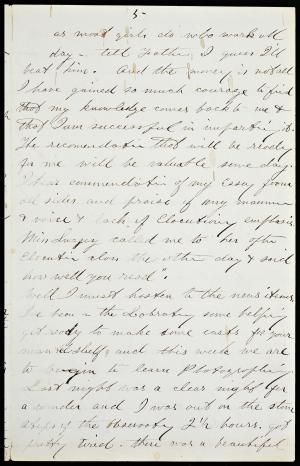 5-
as most girls do who work all
day - tell Father, I guess I'll
beat him. And the money is not all
I have gained so much courage to find
that my knowledge comes back to me &
that I am successful in imparting it.
The recomendation that will be ready
for me will be valuable some day.
I hear commendation of my Essay from
all sides and praise of my manner
& voice & lack of Elocutionary emphasis
Miss called me to her after
Elocution class the other day & said
how well you read".
Well I must hasten to the news items
I've been in the Labratory some helping
get ready to make some casts for your
mantleshelf, and this week we are
to begin to learn Photography
Last night was a clear night for
a wonder and I was out on the stone
steps of the Observatory 2 1/2 hours. got
pretty tired - there was a beautiful